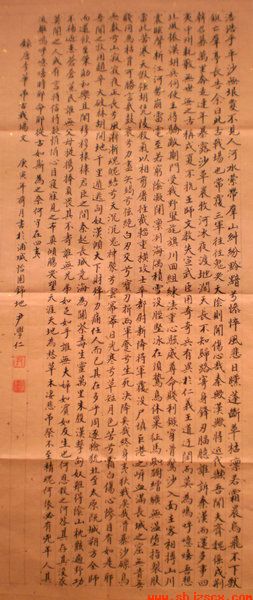 浩浩乎平沙無垠敻不見人河水縈帶羣山糾紛黯兮慘悴風悲日曛蓬斷草枯凜若霜晨鳥飛不下獸
鋌亡羣亭長告余曰此古戰場也常覆三軍往往鬼哭天陰則聞傷心哉秦歟漢歟將近代歟吾聞夫齊魏徭戍荊
韓召募萬里奔走連年暴露沙草晨牧河冰夜渡地闊天長不知歸路寄身鋒刃腷臆誰訴秦漢而還多事四
夷中州耗斁無世無之古稱戎夏不抗王師文教失宣武臣用奇奇兵有異於仁義王道迂闊而莫為嗚呼噫嘻吾想
夫北風振漠胡兵伺便主將驕敵期門受戰野豎旄旗川回組練法重心駭威尊命賤利鏃穿骨驚沙入面主客相搏山川
震眩聲析江河勢崩雷電至若窮陰凝閉凜冽海隅積雪沒脛堅冰在鬚鷙鳥休巢征馬踟躕繒纊無溫墮指裂膚
當此苦寒天假強胡憑陵殺氣以相剪屠徑截輜重橫攻士卒都尉新降將軍復沒屍填巨港之岸血滿長城之窟無貴無
賤同為枯骨可勝言哉鼓衰兮力盡矢竭兮弦絕白刃交兮寶刀折兩軍蹙兮生死決降矣哉終身夷狄戰矣哉骨暴沙礫鳥
無聲兮山寂寂夜正長兮風淅淅魂魄結兮天沉沉鬼神聚兮雲冪冪日光寒兮草短月色苦兮霜白傷心慘目有如是耶
吾聞之牧用趙卒大破林胡開地千里遁逃匈奴漢傾天下財殫力痡任人而已其在多乎周逐獫狁北至太原既城朔方全師
而還飲至策勳和樂且閑穆穆棣棣君臣之間秦起長城竟海為關荼毒生靈萬里朱殷漢擊匈奴雖得陰山枕骸遍野功
不補患蒼蒼蒸民誰無父母提攜捧負畏其不壽誰無兄弟如足如手誰無夫婦如賓如友生也何恩殺之何咎其存其沒家
莫聞知人或有言將信將疑悁悁心目寢寐見之布奠傾觴哭望天涯天地為愁草木淒悲弔祭不至精魂何依必有凶年人其
流離嗚呼噫嘻時耶命耶從古如斯為之奈何守在四夷
錄唐李華弔古戰場文 庚寅年荷月書於浦城 尹 仁
www.sbjzscx.com